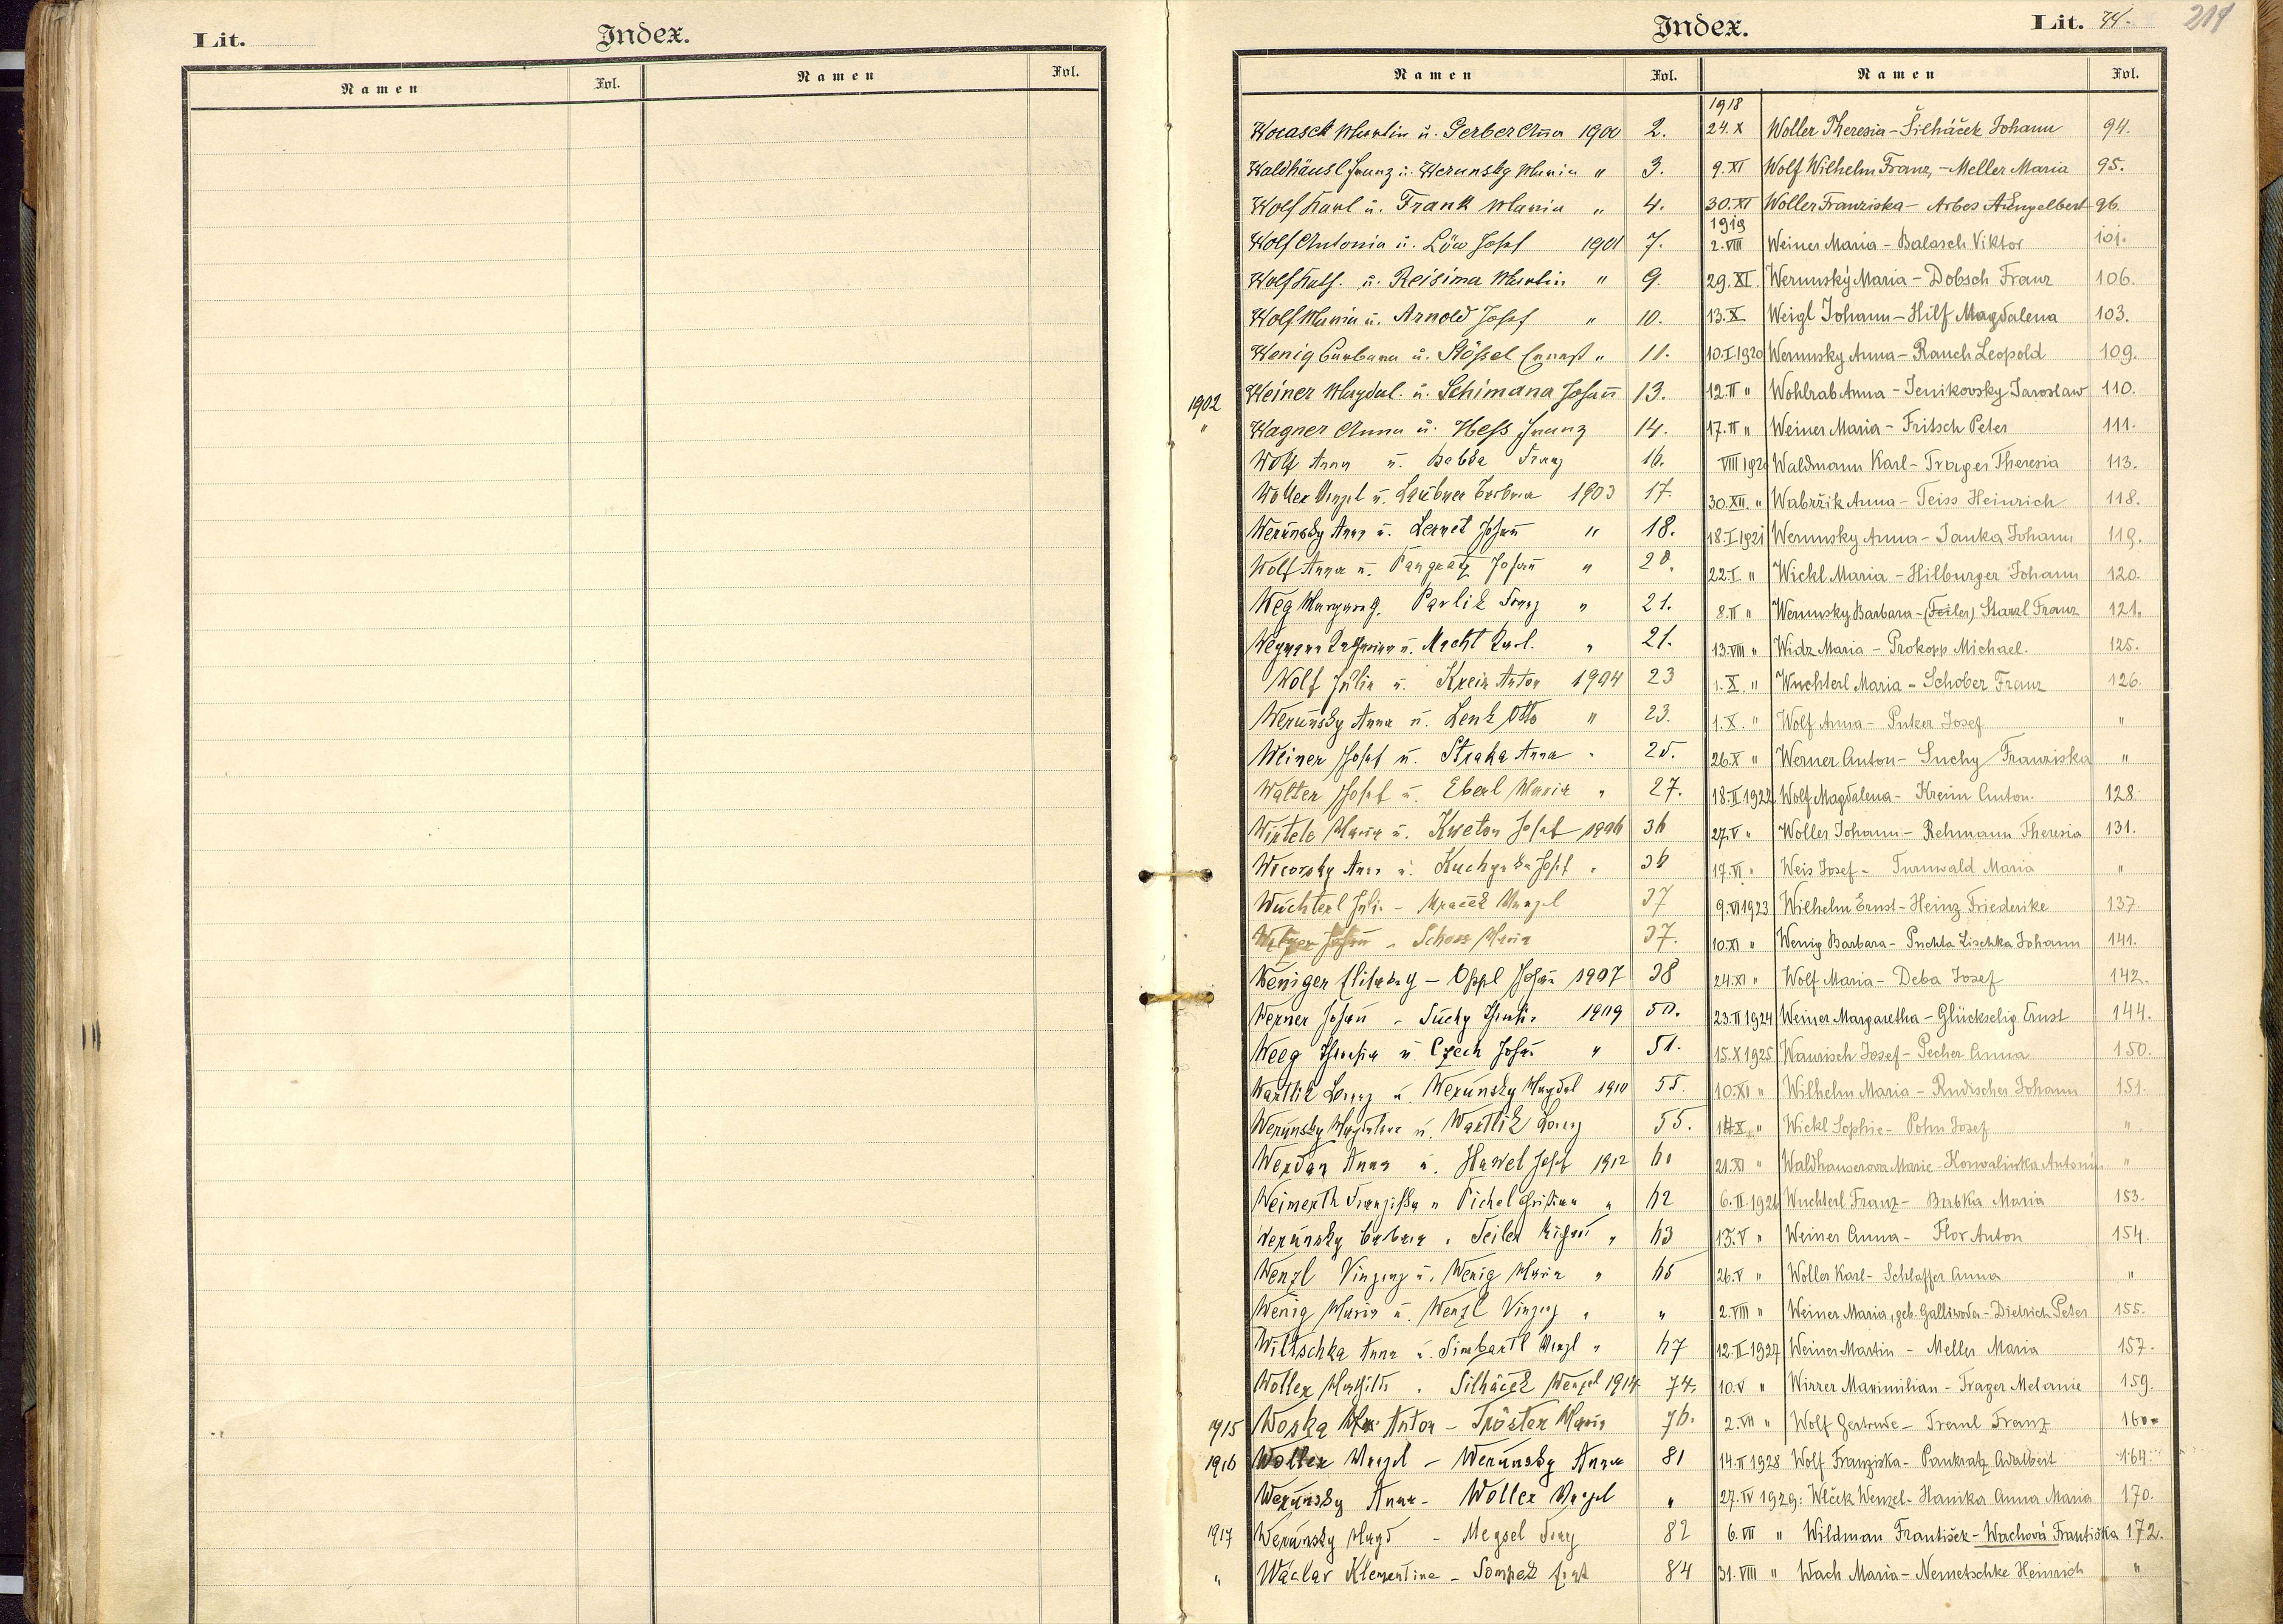 Lit.
Index.
Namen
Fol.
Namen
Fol.
Index.
Lit. W.
219
Namen
Fol.
Namen
Fol.
Wocasek Martin u. Gerber Anna 1900 2.
Waldhäusl Franz u. Werunsky Maria " 3.
Wolf Karl u. Frank Maria " 4.
Wolf Antonia u. Löw Josef 1901 7.
Wolf Kath. u. Reisima Martin " 9.
Wolf Maria u. Arnold Josef " 10.
Wenig Barbara u. Stößel Ernest " 11.
1902 Weiner Magdal. u. Schimana Johann 13.
" Wagner Anna u. Heß Franz 14.
Wolf Anna u. Babka Franz 16.
Woller Wenzel u. Laubner Barbara 1903 17.
Werunsky Anna u. Lernet Johann " 18.
Wolf Anna u. Pangratz Johann " 20.
Weg Margareth. Pavlik Franz " 21.
Wegmann Katharina u. Macht Karl. " 21.
Wolf Julia u. Krein Anton 1904 23
Werunsky Anna u. Lenk Otto " 23.
Weiner Josef u. Straka Anna " 25.
Walter Josef u. Eberl Maria " 27.
Wintele Maria u. Kweton Josef 1906 36
Anna u. Josef " 36
Wuchterl Juli. - Mraček Wenzel 37
Johann - Maria 37.
Weniger Elisabeth - Oppl Johann 1907 38
Werner Johann - Suchy Theresia 1909 50.
Weeg Theresia u. Czech Johann " 51.
Wartlik Lorenz u. Werunsky Magdal 1910 55.
Werunsky Magdalena u. Wartlik Lorenz 55.
Werdan Anna u. Hawel Josef 1912 60
Weimerth Franziska u Pichel Christian " 62
Werunsky Barbara " Teiler Richard " 63
Wenzl Vinzenz u. Wenig Maria " 65
Wenig Maria u. Wenzl Vinzenz " "
Wiltschka Anna u. Simbartl Wenzl " 67
Woller Mathilde " Silháček Wenzel 1914 74.
1915 Woska Anton - Tröster Maria 76.
1916 Woller Wenzel - Werunsky Anna 81
Werunsky Anna - Woller Wenzel "
1917 Werunsky Magd - Megsel Franz 82
" Waclav Klementine - Ernst 84
1918
24.X Woller Theresia - Šilháček Johann 94.
9.XI Wolf Wilhelm Franz, - Meller Maria 95.
30.XI Woller Franziska - Arbes Engelbert 96.
1919
2.VIII Weiner Maria - Balasch Viktor 101.
29.XI. Werunský Maria - Dobsch Franz 106.
13.X Weigl Johann - Hilf Magdalena 103.
10.I.1920 Werunsky Anna - Rauch Leopold 109.
12.II " Wohlrab Anna - Jenikovsky Jaroslaw 110.
17.II " Weiner Maria - Fritsch Peter 111.
VIII 1920 Waldmann Karl - Trager Theresia 113.
30.XII. " Wabržik Anna - Teiss Heinrich 118.
18.I.1921 Werunsky Anna - Janka Johann 119.
22.I. " Wickl Maria - Hilburger Johann 120.
8.II " Werunsky Barbara - (Teiler) Starzl Franz 121.
13.VIII " Widz Maria - Prokopp Michael. 125.
1.X. " Wuchterl Maria - Schober Franz 126.
1.X. " Wolf Anna - Putzer Josef "
26.X " Werner Anton - Suchy Franziska "
18.II 1922 Wolf Magdalena - Kreim Anton. 128.
27.V " Woller Johann - Rehmann Theresia 131.
17.VI. " Weis Josef - Turnwald Maria "
9.VI 1923 Wilhelm Ernst - Heinz Friederike 137.
10.XI " Wenig Barbara - Puchta Lischka Johann 141.
24.XI " Wolf Maria - Deba Josef 142.
23.II 1924 Weiner Margaretha - Glückselig Ernst 144.
15.X 1925 Waurisch Josef - Pecher Anna 150.
10.XI " Wilhelm Maria - Rudischer Johann 151.
14.X " Wickl Sophie - Pohn Josef "
21.XI " Waldhauserova Marie - Horwalinka Antonín "
6.II 1926 Wuchterl Franz - Bubka Maria 153.
15.V " Weiner Anna - Flor Anton 154.
26.V " Woller Karl - Schlaffer Anna "
2.VIII " Weiner Maria, geb. Galliwoda - Dietrich Peter 155.
12.II 1927 Weiner Martin - Meller Maria 157.
10.V " Wirrer Maximilian - Trager Melanie 159.
2.VII " Wolf Gertrude - Treml Franz 160.
14.II 1928 Wolf Franziska - Pankratz Adalbert 164.
27.IV 1929: Wlček Wenzel - Hanika Anna Maria 170.
6.VII " Wildman František - Wachová Františka 172.
31.VIII " Wach Maria - Nemetschke Heinrich "